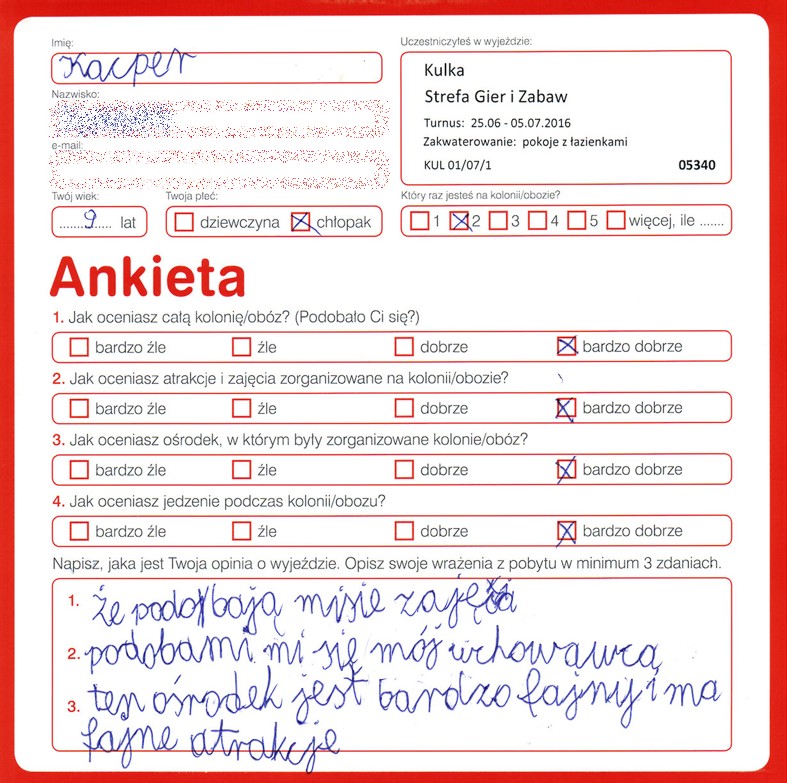 Imię:
Kacper
Nazwisko:
e-mail:
Twój wiek:
9 lat
Twoja płeć:
dziewczyna chłopak
Uczestniczyłeś w wyjeździe:
Kulka
Strefa Gier i Zabaw
Turnus: 25.06 - 05.07.2016
Zakwaterowanie: pokoje z łazienkami
KUL 01/07/1 05340
Który raz jesteś na kolonii/obozie?
1 2 3 4 5 więcej, ile .......
Ankieta
1. Jak oceniasz całą kolonię/obóz? (Podobało Ci się?)
bardzo źle źle dobrze bardzo dobrze
2. Jak oceniasz atrakcje i zajęcia zorganizowane na kolonii/obozie?
bardzo źle źle dobrze bardzo dobrze
3. Jak oceniasz ośrodek, w którym były zorganizowane kolonie/obóz?
bardzo źle źle dobrze bardzo dobrze
4. Jak oceniasz jedzenie podczas kolonii/obozu?
bardzo źle źle dobrze bardzo dobrze
Napisz, jaka jest Twoja opinia o wyjeździe. Opisz swoje wrażenia z pobytu w minimum 3 zdaniach.
1. że podobają misie zajęcia
2. podobami mi się mój wchowawca
3. ten ośrodek jest bardzo fajny i ma
fajne atrakcje